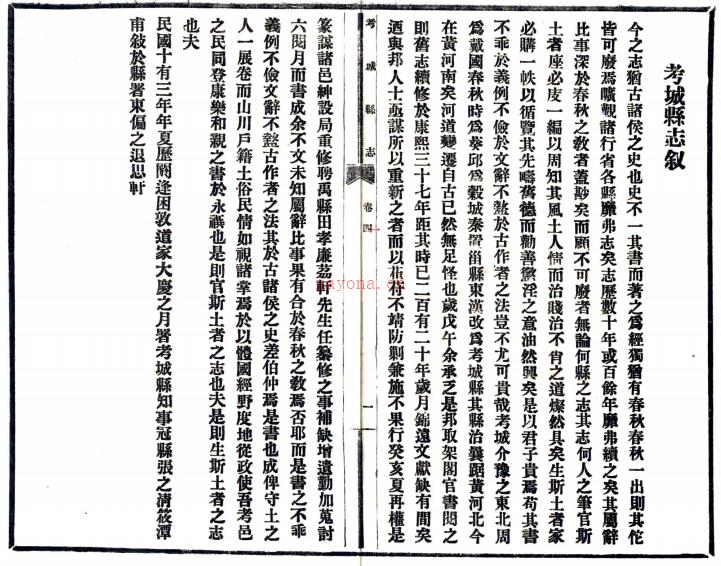 考城縣志叙
今之志猶古諸侯之史也史不一其書而著之爲經獨猶有春秋春秋一出則其佗
皆可廢焉嚝觀諸行省各縣靡弗志矣志歷數十年或百餘年靡弗續之矣其屬辭
比事深於春秋之敎者蓋尠矣而顧不可廢者無論何縣之志其志何人之筆官斯
土者座必庋一編以周知其風土人情而治賤治不肖之道燦然具矣生斯土者家
必購一帙以循覽其先疇舊德而勸善懲淫之意油然興矣是以君子貴焉苟其書
不乖於義例不儉於文辭不盭於古作者之法豈不尤可貴哉考城介豫之東北周
爲戴國春秋時爲葵邱爲穀城秦置甾縣東漢改爲考城縣其縣治曩踞黃河北今
在黃河南矣河道變遷自古已然無足怪也歲戊午余承乏是邦取架閣官書閱之
則舊志續修於康熙三十七年距其時已二百有二十年歲月綿遠文獻缺有間矣
迺與邦人士亟謀所以重新之者而以萑苻不靖防剿兼施不果行癸亥夏再權是
考城縣志
卷四
一
篆謀諸邑紳設局重修聘禹縣田孝廉荔軒先生任纂修之事補缺增遺勤加蒐討
六閱月而書成余不文未知屬辭比事果有合於春秋之敎焉否耶而是書之不乖
義例不儉文辭不盭古作者之法其於古諸侯之史差伯仲焉是書也成俾守土之
人一展卷而山川戶籍土俗民情如視諸掌焉於以體國經野度地從政使吾考邑
之民同登康樂和親之書於永禩也是則官斯土者之志也夫是則生斯土者之志
也夫
民國十有三年年夏歷閼逢困敦道家大慶之月署考城縣知事冠縣張之清筱潭
甫敍於縣署東偏之退思軒
mayona.com